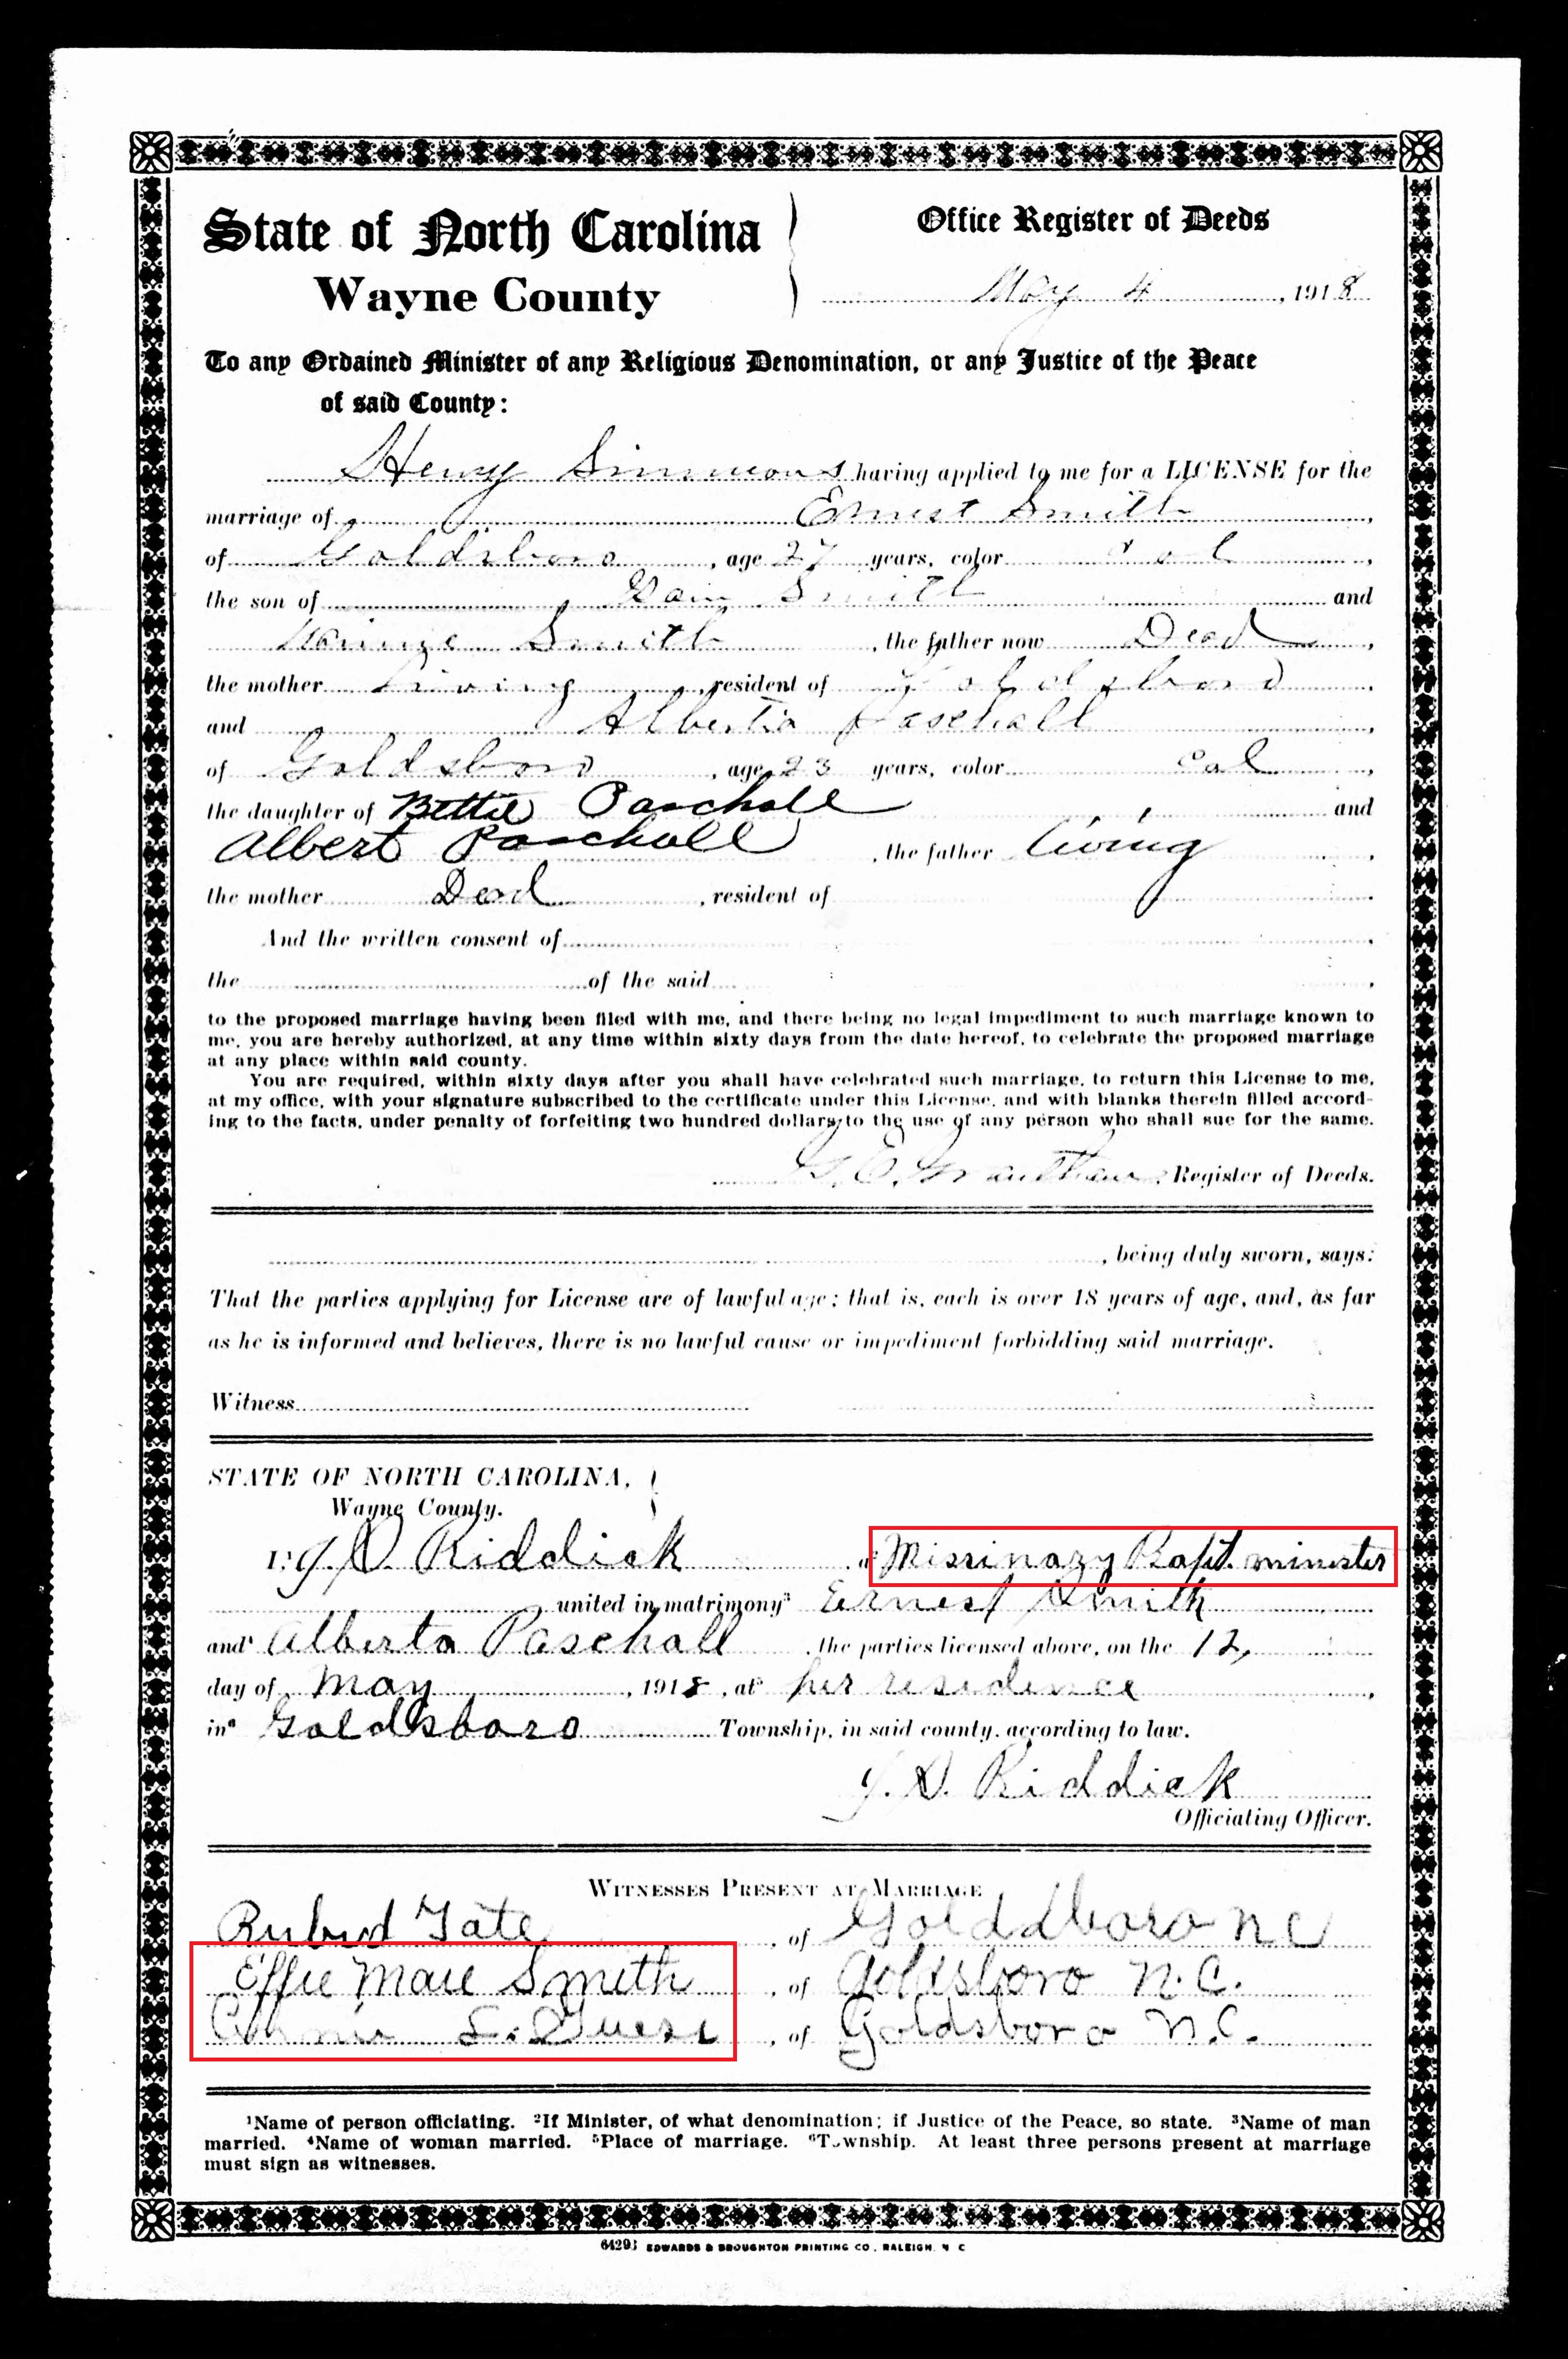 State of North Carolina
Wayne County
Office Register of Deeds
May 4, 1918
To any Ordained Minister of any Religious Denomination, or any Justice of the Peace
of said County:
Henry Simmons having applied to me for a LICENSE for the
marriage of Ernest Smith,
of Goldsboro, age 27 years, color Col,
the son of Smith and
Smith, the father now Dead,
the mother Living, resident of Goldsboro.
and Alberta Paschall,
of Goldsboro, age 23 years, color Col,
the daughter of Bettie Paschall and
Albert Paschall, the father living,
the mother Dead, resident of
And the written consent of
the of the said
to the proposed marriage having been filed with me, and there being no legal impediment to such marriage known to
me, you are hereby authorized, at any time within sixty days from the date hereof, to celebrate the proposed marriage
at any place within said county.
You are required, within sixty days after you shall have celebrated such marriage, to return this License to me,
at my office, with your signature subscribed to the certificate under this License, and with blanks therein filled accord-
ing to the facts, under penalty of forfeiting two hundred dollars, to the use of any person who shall sue for the same.
G. E. Grantham, Register of Deeds.
, being duly sworn, says:
That the parties applying for License are of lawful age; that is, each is over 18 years of age, and, as far
as he is informed and believes, there is no lawful cause or impediment forbidding said marriage.
Witness
STATE OF NORTH CAROLINA,
Wayne County.
I,¹ J. D. Riddick, a² Missinazy Bapt. minister
united in matrimony³ Ernest Smith
and⁴ Alberta Paschall, the parties licensed above, on the 12,
day of May, 1918, at⁵ her residence,
in⁶ Goldsboro Township, in said county, according to law.
J. D. Riddick
Officiating Officer.
WITNESSES PRESENT AT MARRIAGE
Tate, of Golddboro NC
Effie Maie Smith, of Goldsboro N.C.
of Goldsboro N.C.
¹Name of person officiating. ²If Minister, of what denomination; if Justice of the Peace, so state. ³Name of man
married. ⁴Name of woman married. ⁵Place of marriage. ⁶Township. At least three persons present at marriage
must sign as witnesses.
EDWARDS & BROUGHTON PRINTING CO., RALEIGH, N C